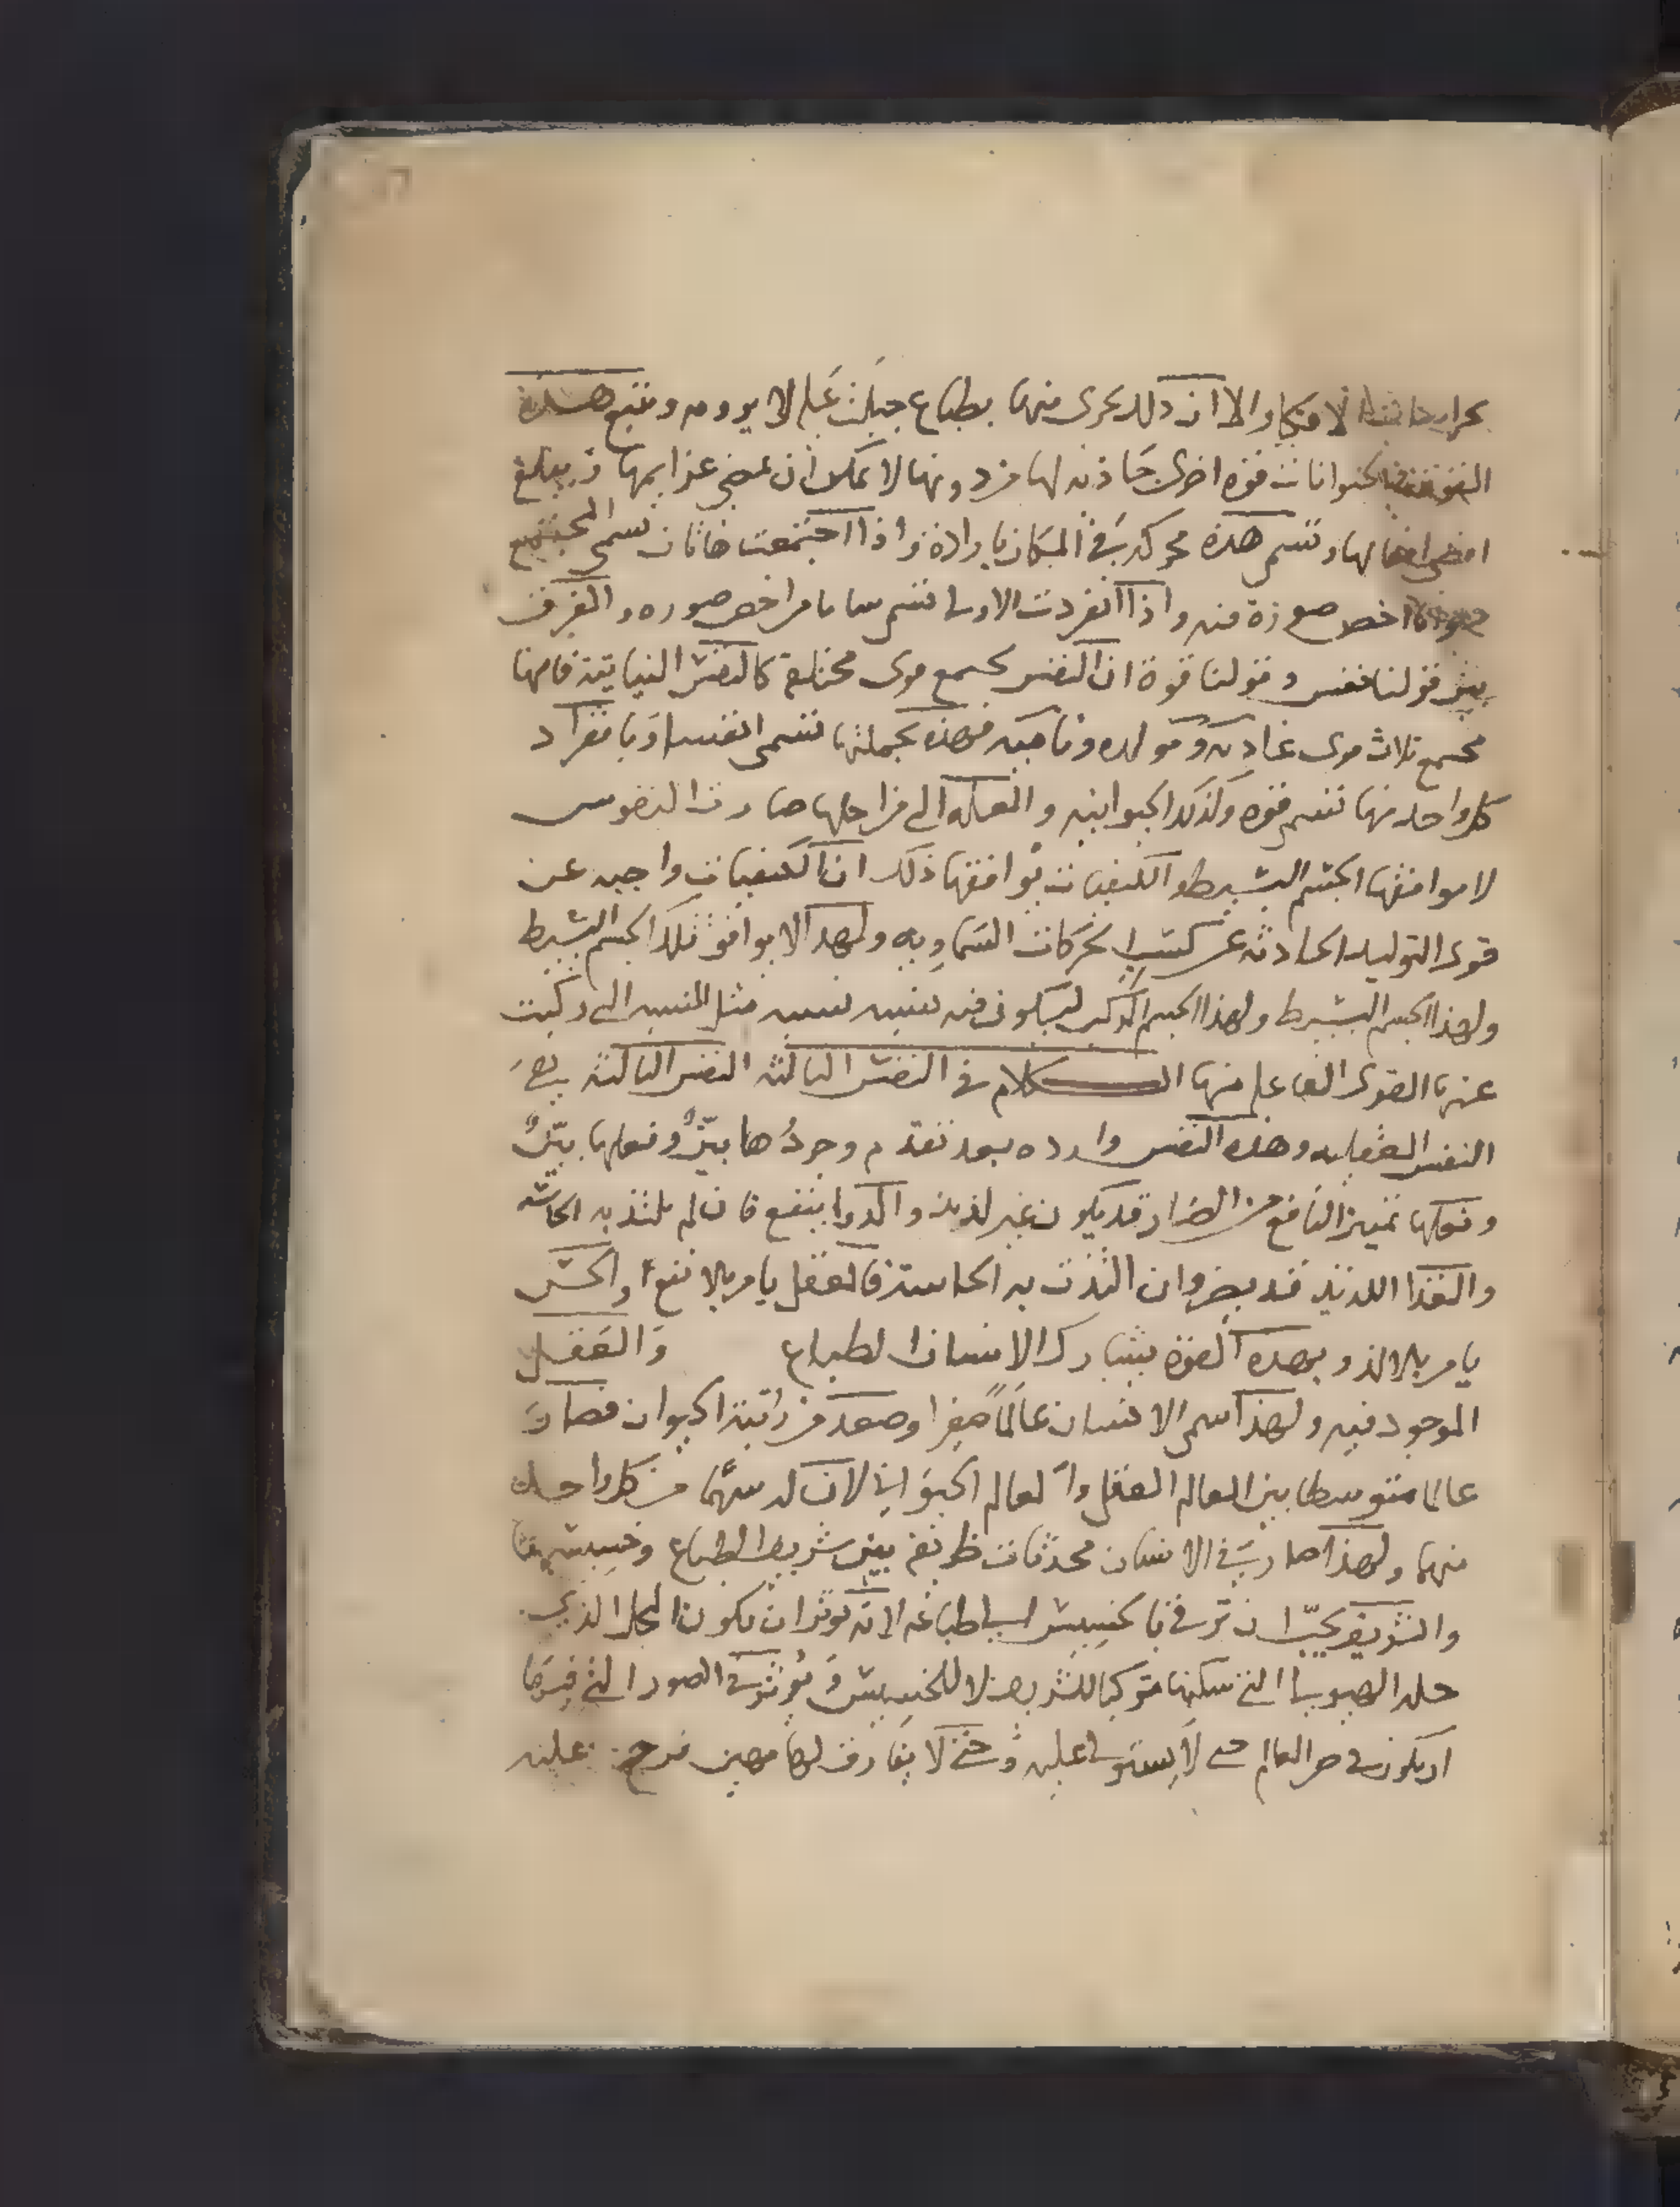 الا ان ذلك يجرى منها بطباع جبلت عليه لا بروية ويتبع هذه
القوة في الحيوانات قوة اخرى خادمة لها من دونها لا يمكن ان تمضي عزايمها وتبلغ
اقصى افعالها وتسمى هذه محركة في المكان بارادة واذا اجتمعت هاتان تسمى المجتمع
حيوانا اخص صورة منه واذا انفردت الاولى تسمى نباتا من اخص صوره والفرق
بين قولنا نفس وقولنا قوة ان النفس تجمع قوى مختلفة كالنفس النباتية فانها
تجمع ثلاث قوى غاذية ومولدة ونامية فهذه بجملتها تسمى نفسا وبانفراد
كل واحد منها تسمى قوة وكذلك الحيوانية والعلة التي من اجلها صارت النفوس
لا يوافقها الجسم البسيط والكيفيات توافقها ذلك ان الكيفيات واجبه عن
قوى التوليد الحادثة عن الحركات السماوية ولهذا لا يوافق تلك الجسم البسيط
ولهذا الجسم البسيط ولهذا الجسم المركب ليكون فيه نسبة مثل النسبة التي ركبت
عنها القوى الفاعلة منها الكلام في النفس الثالثة النفس الثالثة هي
النفس العقلية وهذه النفس واردة بعد تقدم وجودها بين وفعلها بين
وفعلها تمييز النافع من الضار قد يكون غير لذيذ والدوا ينفع فان لم تلتذ به الحاسة
والغذا اللذيذ قد يضر وان التذت به الحاسة فالعقل يامر بالانفع والحس
يامر بالالذ وبهذه القوة يشارك الانسان الطباع والعقل
الموجود فيه ولهذا سمى الانسان عالما صغيرا وصعد من رتبة الحيوان فصار
عالما متوسطا بين العالم العقلي والعالم الحيواني لان له سهما من كل واحد
منهما ولهذا صار في الانسان محدثات طريقة بين شريف الطباع وخسيسها
والشريف يحب ان ترقى بالخسيس الى طباعه لانه يوثر ان يكون المحل الذي
حله الهيولى التي سكنها متركبا للشريف لا للخسيس ويؤثر في الصور التي فيها
ان يكون في العالم حتى لا يستولي عليه وحتى لا يفارق لها فرحة عليه